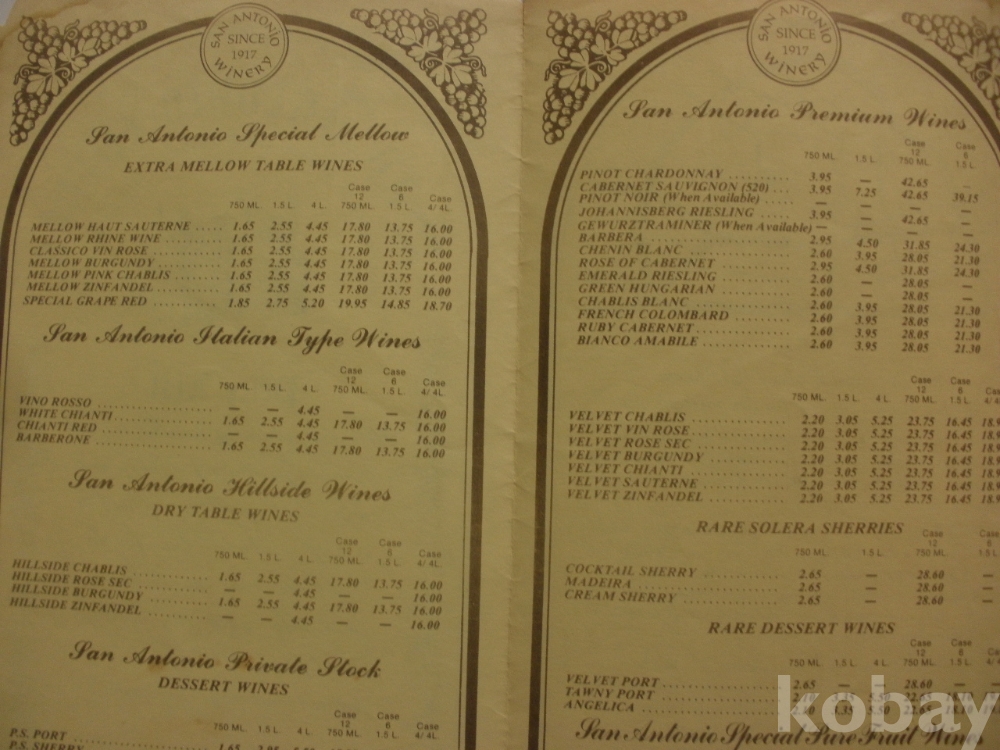 SAN ANTONIO WINERY
SINCE
1917
San Antonio Special Mellow
EXTRA MELLOW TABLE WINES
750 ML. 1.5 L. 4 L. Case 12 750 ML. Case 6 1.5 L. Case 4/ 4L.
MELLOW HAUT SAUTERNE ..... 1.65 2.55 4.45 17.80 13.75 16.00
MELLOW RHINE WINE ..... 1.65 2.55 4.45 17.80 13.75 16.00
CLASSICO VIN ROSE ..... 1.65 2.55 4.45 17.80 13.75 16.00
MELLOW BURGUNDY ..... 1.65 2.55 4.45 17.80 13.75 16.00
MELLOW PINK CHABLIS ..... 1.65 2.55 4.45 17.80 13.75 16.00
MELLOW ZINFANDEL ..... 1.65 2.55 4.45 17.80 13.75 16.00
SPECIAL GRAPE RED ..... 1.85 2.75 5.20 19.95 14.85 18.70
San Antonio Italian Type Wines
750 ML. 1.5 L. 4 L. Case 12 750 ML. Case 6 1.5 L. Case 4/ 4L.
VINO ROSSO ..... — — 4.45 — — 16.00
WHITE CHIANTI ..... 1.65 2.55 4.45 17.80 13.75 16.00
CHIANTI RED ..... — — 4.45 — — 16.00
BARBERONE ..... 1.65 2.55 4.45 17.80 13.75 16.00
San Antonio Hillside Wines
DRY TABLE WINES
750 ML. 1.5 L. 4 L. Case 12 750 ML. Case 6 1.5 L. Case 4/ 4L.
HILLSIDE CHABLIS ..... 1.65 2.55 4.45 17.80 13.75 16.00
HILLSIDE ROSE SEC ..... — — 4.45 — — 16.00
HILLSIDE BURGUNDY ..... 1.65 2.55 4.45 17.80 13.75 16.00
HILLSIDE ZINFANDEL ..... — — 4.45 — — 16.00
San Antonio Private Stock
DESSERT WINES
750 ML. 1.5 L. 4 L. Case 12 750 ML. Case 6 1.5 L. Case 4/ 4L.
P.S. PORT
P.S. SHERRY
SAN ANTONIO WINERY
SINCE
1917
San Antonio Premium Wines
750 ML. 1.5 L. Case 12 750 ML. Case 6 1.5 L.
PINOT CHARDONNAY ..... 3.95 — 42.65 —
CABERNET SAUVIGNON (520) ... 3.95 7.25 42.65 39.15
PINOT NOIR (When Available) ..... — — — —
JOHANNISBERG RIESLING ..... 3.95 — 42.65 —
GEWURZTRAMINER (When Available) — — — —
BARBERA ..... 2.95 4.50 31.85 24.30
CHENIN BLANC ..... 2.60 3.95 28.05 21.30
ROSE OF CABERNET ..... 2.95 4.50 31.85 24.30
EMERALD RIESLING ..... 2.60 — 28.05 —
GREEN HUNGARIAN ..... 2.60 — 28.05 —
CHABLIS BLANC ..... 2.60 3.95 28.05 21.30
FRENCH COLOMBARD ..... 2.60 3.95 28.05 21.30
RUBY CABERNET ..... 2.60 3.95 28.05 21.30
BIANCO AMABILE ..... 2.60 3.95 28.05 21.30
750 ML. 1.5 L. 4 L. Case 12 750 ML. Case 6 1.5 L. 4/ 4
VELVET CHABLIS ..... 2.20 3.05 5.25 23.75 16.45 18.9
VELVET VIN ROSE ..... 2.20 3.05 5.25 23.75 16.45 18.9
VELVET ROSE SEC ..... 2.20 3.05 5.25 23.75 16.45 18.9
VELVET BURGUNDY ..... 2.20 3.05 5.25 23.75 16.45 18.9
VELVET CHIANTI ..... 2.20 3.05 5.25 23.75 16.45 18.9
VELVET SAUTERNE ..... 2.20 3.05 5.25 23.75 16.45 18.9
VELVET ZINFANDEL ..... 2.20 3.05 5.25 23.75 16.45 18.9
RARE SOLERA SHERRIES
750 ML. 1.5 L. Case 12 750 ML. Case 6 1.5 L.
COCKTAIL SHERRY ..... 2.65 — 28.60 —
MADEIRA ..... 2.65 — 28.60 —
CREAM SHERRY ..... 2.65 — 28.60 —
RARE DESSERT WINES
750 ML. 1.5 L. 4 L. Case 12 750 ML. Case 6 1.5 L.
VELVET PORT ..... 2.65 — 28.60
TAWNY PORT
ANGELICA
San Antonio Special Pure Fruit Wine
kobay